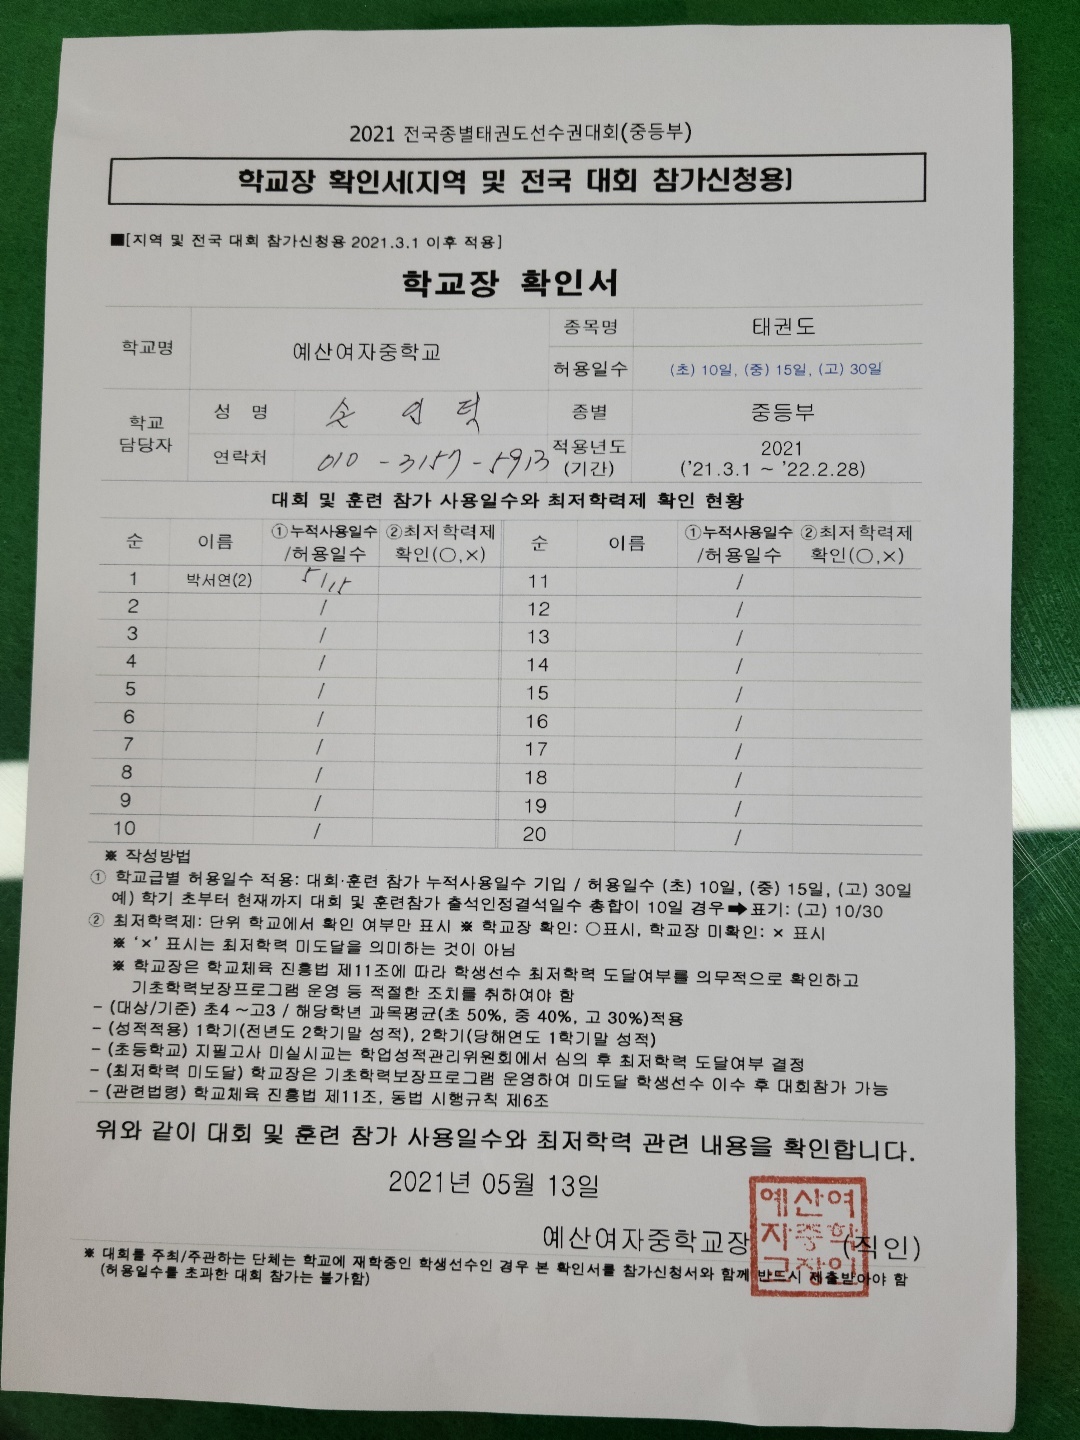 2021 전국종별태권도선수권대회(중등부)
학교장 확인서(지역 및 전국 대회 참가신청용)
■[지역 및 전국 대회 참가신청용 2021.3.1 이후 적용]
학교장 확인서
학교명 예산여자중학교 종목명 태권도
허용일수 (초) 10일, (중) 15일, (고) 30일
학교 담당자 성 명 손 덕 종별 중등부
연락처 010 - 3157 - 5913 적용년도 (기간) 2021 ('21.3.1 ~ '22.2.28)
대회 및 훈련 참가 사용일수와 최저학력제 확인 현황
순 이름 ①누적사용일수 /허용일수 ②최저학력제 확인(○,×) 순 이름 ①누적사용일수 /허용일수 ②최저학력제 확인(○,×)
1 박서연(2) 5/15 11 /
2 / 12 /
3 / 13 /
4 / 14 /
5 / 15 /
6 / 16 /
7 / 17 /
8 / 18 /
9 / 19 /
10 / 20 /
※ 작성방법
① 학교급별 허용일수 적용: 대회·훈련 참가 누적사용일수 기입 / 허용일수 (초) 10일, (중) 15일, (고) 30일
예) 학기 초부터 현재까지 대회 및 훈련참가 출석인정결석일수 총합이 10일 경우➡표기: (고) 10/30
② 최저학력제: 단위 학교에서 확인 여부만 표시 ※ 학교장 확인: ○표시, 학교장 미확인: × 표시
※ '×' 표시는 최저학력 미도달을 의미하는 것이 아님
※ 학교장은 학교체육 진흥법 제11조에 따라 학생선수 최저학력 도달여부를 의무적으로 확인하고
기초학력보장프로그램 운영 등 적절한 조치를 취하여야 함
– (대상/기준) 초4 ~고3 / 해당학년 과목평균(초 50%, 중 40%, 고 30%)적용
– (성적적용) 1학기(전년도 2학기말 성적), 2학기(당해연도 1학기말 성적)
– (초등학교) 지필고사 미실시교는 학업성적관리위원회에서 심의 후 최저학력 도달여부 결정
– (최저학력 미도달) 학교장은 기초학력보장프로그램 운영하여 미도달 학생선수 이수 후 대회참가 가능
– (관련법령) 학교체육 진흥법 제11조, 동법 시행규칙 제6조
위와 같이 대회 및 훈련 참가 사용일수와 최저학력 관련 내용을 확인합니다.
2021년 05월 13일
예산여자중학교장 (직인)
예산여
자중학
교장인
※ 대회를 주최/주관하는 단체는 학교에 재학중인 학생선수인 경우 본 확인서를 참가신청서와 함께 반드시 제출받아야 함
(허용일수를 초과한 대회 참가는 불가함)